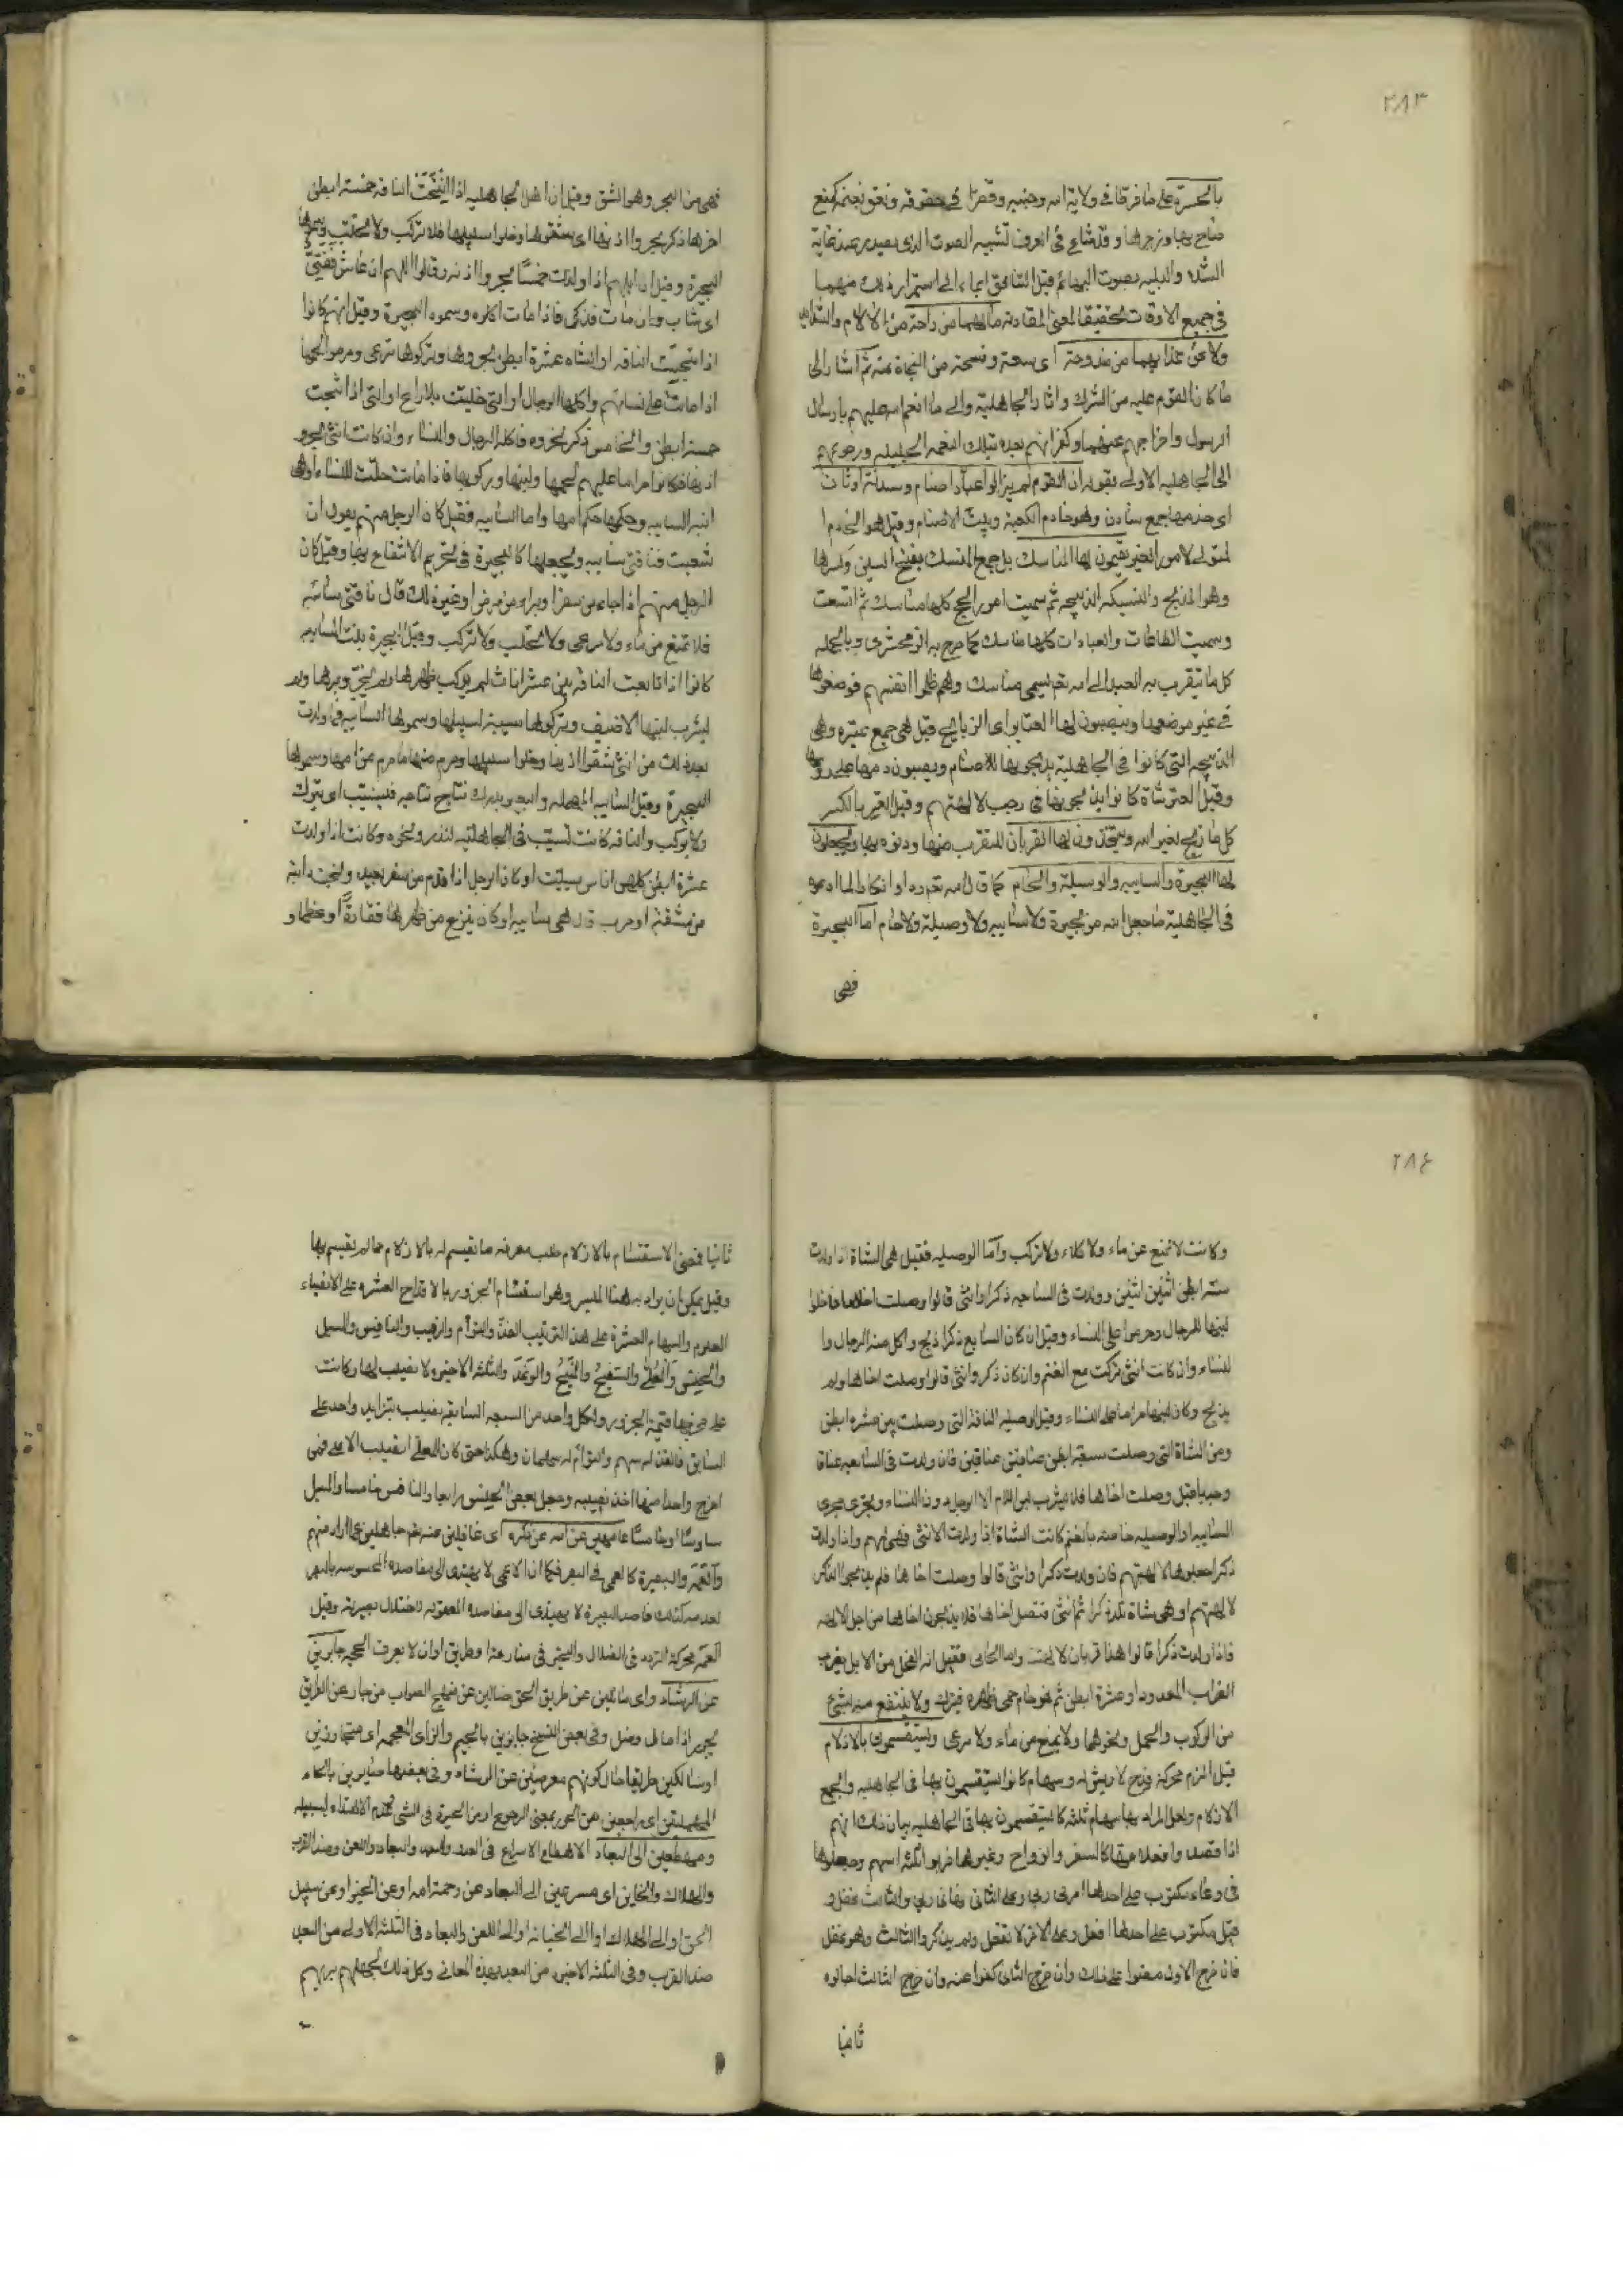 ٢٨٣
بالحسرة على ما فرطا في ولاية الله وجنبه وقصرا في حقوقه ونعق نجمه كمنع
صاح بها وزجرها وقد شاع في العرف تشبيه الصوت الذي يصدر عند غاية
الشدة والبلية بصوت البهائم قيل التنافق ايماء الى استمرار ذلك منهما
في جميع الاوقات تحقيقا لمعنى المقارنة ما لهما من راحة من الآلام والشدايد
ولا عن عذابهما من مندوحة اي سعة وفسحة من النجاة عنه ثم اشار الى
ما كان القوم عليه من الشرك واثار الجاهلية والى ما انعم الله عليهم بارسال
الرسول واخراجهم عنهما وكفرانهم بعده بتلك النعمة الجليلة ورجوعهم
الى الجاهلية الاولى بقوله ان القوم لم يزالوا عباد اصنام وسدنة اوثان
اي خدمها جمع سادن وهو خادم الكعبة وبيت الاصنام وقيل هو الخادم
المتولي لامور الغير يقيمون لها المناسك بل جمع المنسك بفتح السين وكسرها
وهو المذبح والنسيكة الذبيحة ثم سميت امور الحج كلها مناسك ثم اتسعت
وسميت الطاعات والعبادات كلها مناسك كما صرح به الزمخشري وبالجملة
كل ما يتقرب به العبد الى الله تعم يسمى مناسك وهم ظلموا انفسهم فوضعوها
في غير موضعها وينصبون لها العتاير اي الذبايح قيل هي جمع عتيرة وهي
الذبيحة التي كانوا في الجاهلية يذبحونها للاصنام ويصبون دمها على رؤسها
وقيل العتر شاة كانوا يذبحونها في رجب لالهتهم وقيل العتر بالكسر
كل ما ذبح لغير الله ويتخذون لها القربان للتقرب منها ودنوه بها ويجعلون
لها البحيرة والسايبة والوسيلة والحام كما قال الله تعم ردا وانكارا لما ادعوه
في الجاهلية ما جعل الله من بحيرة ولا سايبة ولا وصيلة ولا حام اما البحيرة
فهي
فهي من البحر وهو الشق وقيل ان اهل الجاهلية اذا انتجت الناقة خمسة ابطن
اخرها ذكر بحروا اذنها اي يشقونها وخلوا سبيلها فلا تركب ولا تحلب وسموها
البحيرة وقيل ان ابلهم اذا ولدت خمسا بحروا اذنه وقالوا اللهم ان عاش ففتى
اي شاب وان مات فذكى فاذا مات اكلوه وسموه البحيرة وقيل انهم كانوا
اذا نتجت الناقة او الشاة عشرة ابطن بحروها وتركوها ترعى وحرموا لحمها
اذا ماتت على نسائهم واكلها الرجال او التي خليت بلا راع او التي اذا نتجت
خمسة ابطن والخامس ذكر نحروه فاكله الرجال والنساء وان كانت انثى بحروا
اذنها فكان حراما عليهم لحمها ولبنها وركوبها فاذا ماتت حلت للنساء او هي
ابنة السايبة وحكمها حكم امها واما السايبة فقيل كان الرجل منهم يقول ان
شفيت فناقتي سايبة ويجعلها كالبحيرة في تحريم الانتفاع بها وقيل كان
الرجل منهم اذا جاء من سفر او برء من مرض او غير ذلك قال ناقتي سائبة
فلا تمنع من ماء ولا مرعى ولا تحلب ولا تركب وقيل البحيرة بنت السايبة
كانوا اذا تابعت الناقة بين عشر اناث لم يركب ظهرها ولم يجز وبرها ولم
يشرب لبنها الا ضيف وتركوها مسيبة لسبيلها وسموها السايبة فما ولدت
بعد ذلك من انثى شقوا اذنها وخلوا سبيلها وحرم منها ما حرم من امها وسموها
البحيرة وقيل السايبة المهملة والبعير يدرك نتاج نتاجه فيسيب اي يترك
ولا يركب والناقة كانت تسيب في الجاهلية لنذر ونحوه وكانت اذا ولدت
عشرة ابطن كلهن اناث سيبت او كان الرجل اذا قدم من سفر بعيد او نجت دابته
من مشقة او حرب قال هي سايبة او كان ينزع من ظهرها فقارة او عظما و
٢٨٤
وكانت لا تمنع عن ماء ولا كلاء ولا تركب واما الوصيلة فقيل هي الشاة اذا ولدت
ستة ابطن اثنين اثنين وولدت في السابعة ذكرا وانثى قالوا وصلت اخاها فاحلوا
لبنها للرجال وحرموا على النساء وقيل ان كان السابع ذكرا ذبح واكل منه الرجال وا
لنساء وان كانت انثى تركت مع الغنم وان كان ذكر وانثى قالوا وصلت اخاها ولم
يذبح وكان لبنها حراما على النساء وقيل الوصيلة الناقة التي وصلت بين عشرة ابطن
ومن الشاة التي وصلت سبعة ابطن عناقين عناقين فان ولدت في السابعة عناقا
وجديا قيل وصلت اخاها فلا يشرب لبن الام الا الرجال دون النساء ويجري مجرى
السايبة او الوصيلة خاصة بالغنم كانت الشاة اذا ولدت الانثى فهي لهم واذا ولدت
ذكرا جعلوها لالهتهم فان ولدت ذكرا وانثى قالوا وصلت اخاها فلم يذبحوا الذكر
لالهتهم او هي شاة تلد ذكرا ثم انثى فتصل اخاها فلا يذبحون اخاها من اجل الالهة
فاذا ولدت ذكرا قالوا هذا قربان لالهتنا واما الحامي فقيل انه الفحل من الابل يضرب
الضراب المعدود او عشرة ابطن ثم هو حام حمى ظهره فيترك ولا ينتفع منه بشيء
من الركوب والحمل ونحوها ولا يمنع من ماء ولا مرعى ويستقسمون بالازلام
قيل الزلم محركة قدح لا ريش له وسهام كانوا يستقسمون بها في الجاهلية والجمع
الازلام ولعل المراد بها سهام ثلثة كانوا يستقسمون بها في الجاهلية بيان ذلك انهم
اذا قصدوا فعلا كالسفر والزواج وغيرها ضربوا ثلثة اسهم وجعلوها
في وعاء مكتوب على احدها امرني ربي وعلى الثاني نهاني ربي والثالث غفل و
قيل مكتوب على احدها افعل وعلى الاخر لا تفعل ولم يذكروا الثالث وهو غفل
فان خرج الاول مضوا على ذلك وان خرج الثاني كفوا عنه وان خرج الثالث اجالوه
ثانيا
ثانيا فمعنى الاستقسام بالازلام طلب معرفة ما يقسم له بالازلام مما لم يقسم بها
وقيل يمكن ان يراد به هنا الميسر وهو استقسام الجزور بالاقداح العشرة على الانصباء
المعلوم والسهام العشرة على هذا الترتيب الفذ والتوأم والرقيب والنافس والمسبل
والحلس والمعلى والسفيح والمنيح والوغد والثلثة الاخيرة لا نصيب لها وكانت
على صاحبها قيمة الجزور ولكل واحد من السبعة السابقة نصيب بتزايد واحد على
السابق فالفذ له سهم والتوأم له سهمان وهكذا حتى كان المعلى النصيب الاعلى فمن
اخرج واحدا منها اخذ نصيبه وجعل بعض الحلس رابعا والنافس خامسا والمسبل
سادسا وخامسا عامهين عن الله عز ذكره اي غافلين عنه تعم جاهلين بما اراد منهم
والعمه والبصيرة كالعمى في البصر فكما ان الاعمى لا يهتدي الى مقاصده المحسوسة بالبصر
لعدمه كذلك فاقد البصيرة لا يهتدي الى مقاصده المعقولة لاختلال بصيرته وقيل
العمه محركة التردد في الضلال والتحير في منازعة او طريق او ان لا يعرف الحجة جايرين
عن الرشاد اي مائلين عن طريق الحق ضالين عن منهج الصواب من جار عن الطريق
يجور اذا مال وضل وفي بعض النسخ جايزين بالجيم والزاي المعجمة اي متجاوزين
او سالكين طريقا حال كونهم معرضين عن الرشاد وفي بعضها حايرين بالحاء
المهملتين اي راجعين من الحور بمعنى الرجوع او من الحيرة في الشيء لعدم الاهتداء لسبيله
ومهطعين الى البعاد الاهطاع الاسراع في العدو والبعد والبعاد واللعن وضد القرب
والهلاك والخاين اي مسرعين الى البعاد عن رحمة الله او عن الخير او عن سبيل
الحق او الى الهلاك او الى الخيانة او الى اللعن والبعاد في الثلثة الاولى من البعد
ضد القرب وفي الثلثة الاخيرة من البعد بهذه المعاني وكل ذلك لجهلهم بربهم